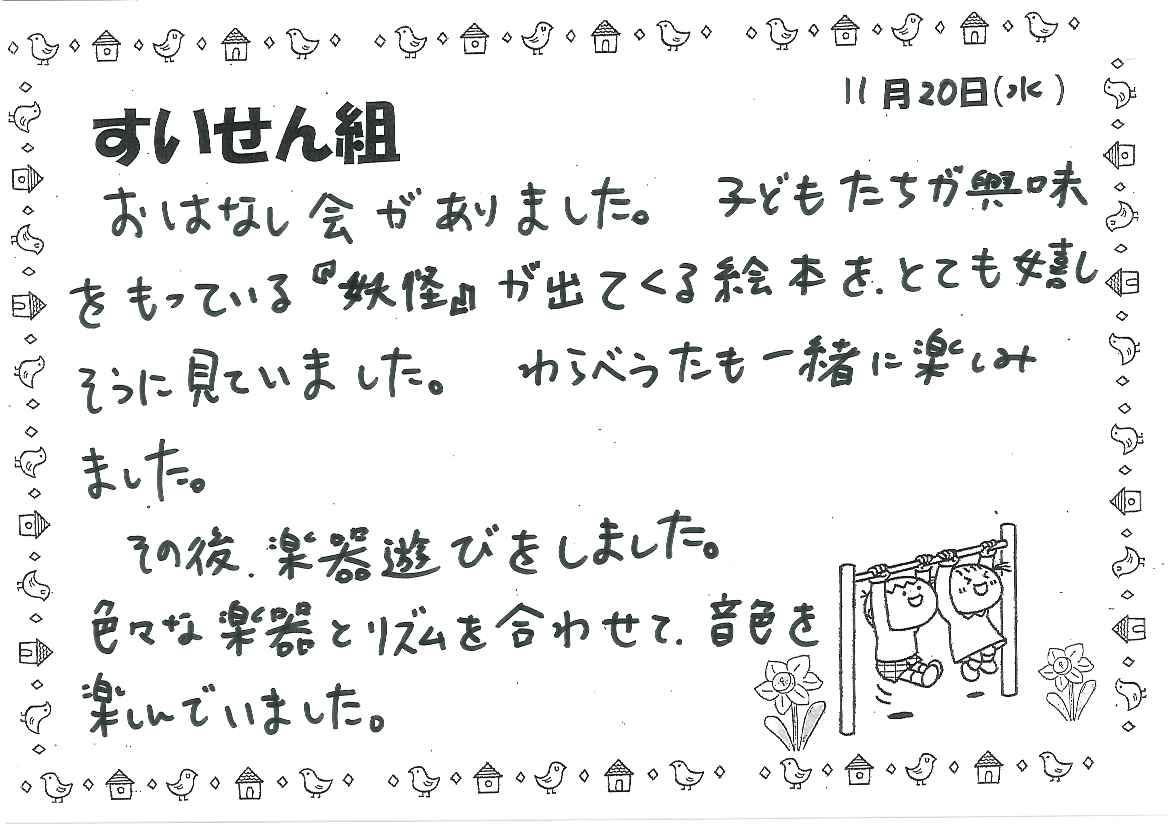 11月20日(水)
すいせん組
おはなし会がありました。 子どもたちが興味
をもっている『妖怪』が出てくる絵本を、とても嬉し
そうに見ていました。 わらべうたも一緒に楽しみ
ました。
その後、楽器遊びをしました。
色々な楽器とリズムを合わせて、音色を
楽しんでいました。